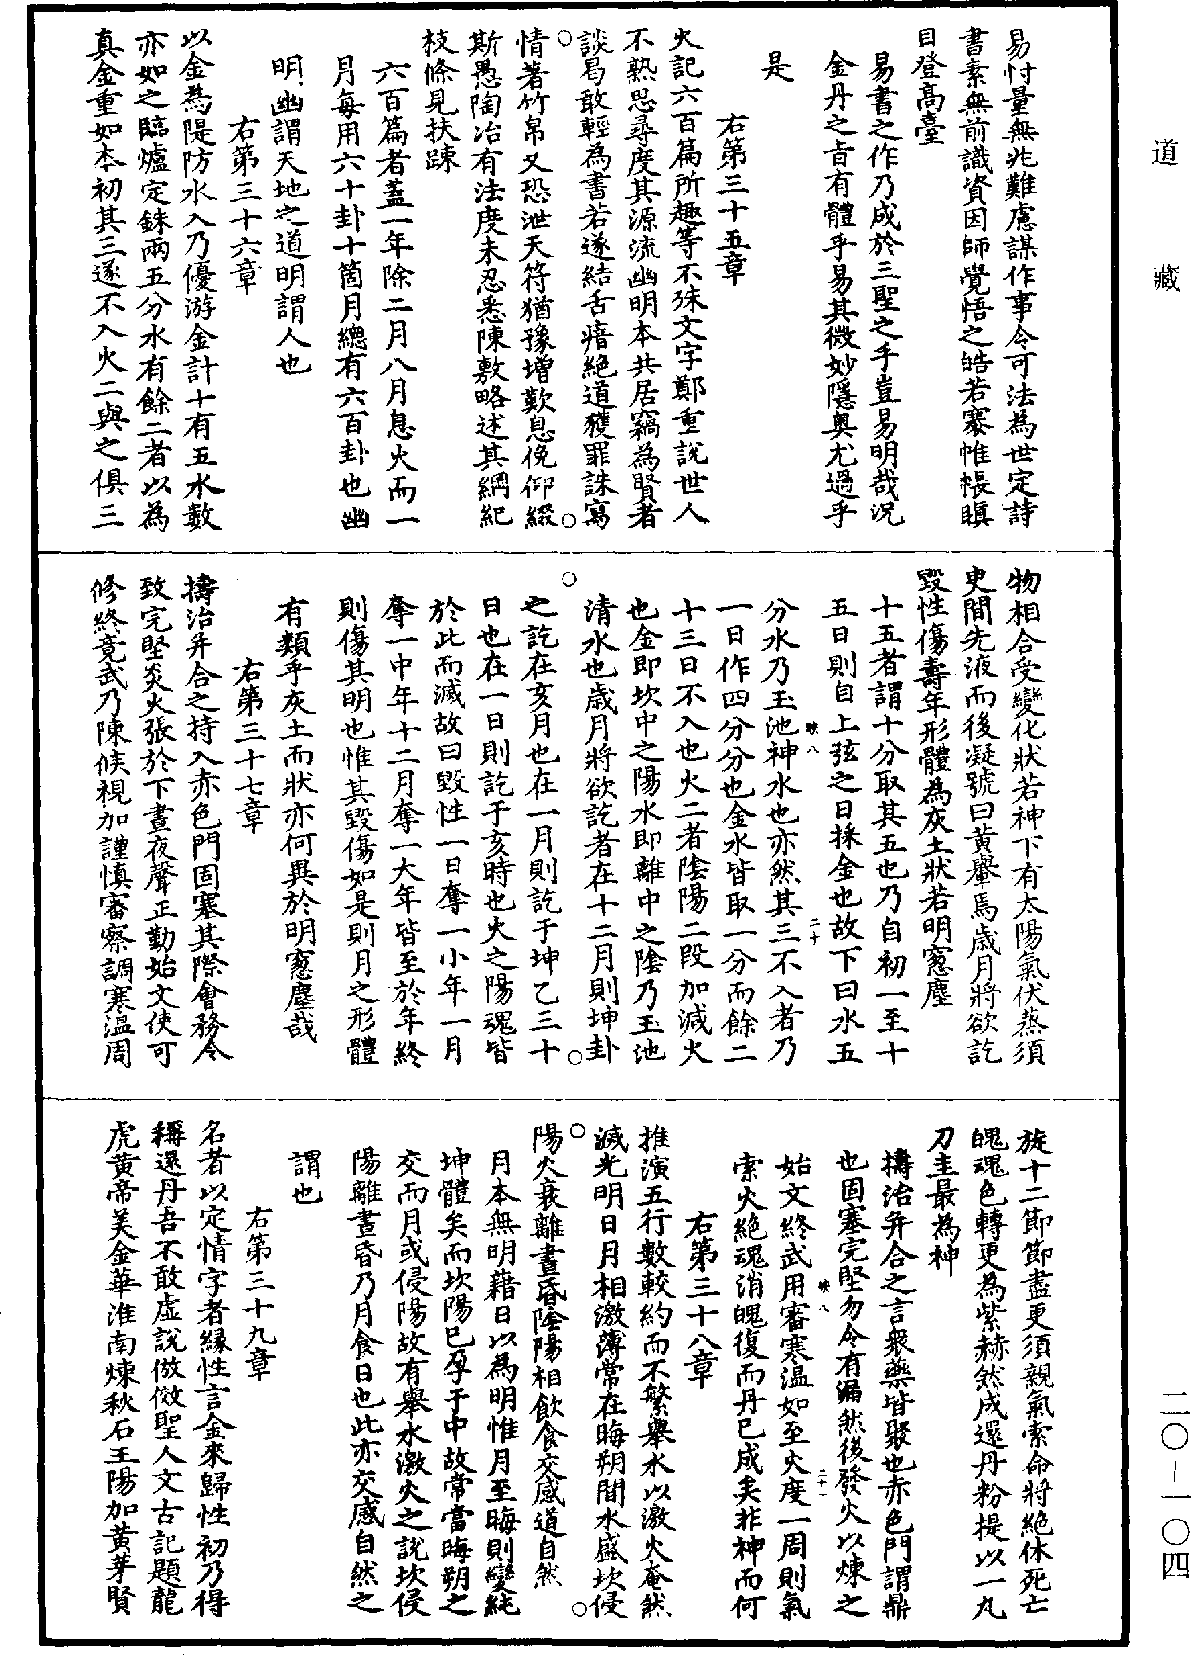 道藏
二〇-一〇四
易忖量無兆難慮謀作事令可法為世定詩
書素無前識資因師覺悟之皓若褰帷帳瞋
目登高臺
易書之作乃成於三聖之手豈易明哉況
金丹之旨有體乎易其微妙隱奧尤過乎
是
右第三十五章
火記六百篇所趣等不殊文字鄭重說世人
不熟思尋度其源流幽明本共居竊為賢者
談曷敢輕為書若遂結舌瘖絕道獲罪誅寫
情著竹帛又恐泄天符猶豫增歎息俛仰綴
斯愚陶冶有法度未忍悉陳敷略述其綱紀
枝條見扶疎
六百篇者蓋一年除二月八月息火而一
月每用六十卦十箇月總有六百卦也幽
明幽謂天地之道明謂人也
右第三十六章
以金為隄防水入乃優游金計十有五水數
亦如之臨爐定銖兩五分水有餘二者以為
真金重如本初其三遂不入火二與之俱三
物相合受變化狀若神下有太陽氣伏蒸須
臾間先液而後凝號曰黃轝焉歲月將欲訖
毀性傷壽年形體為灰土狀若明窻塵
十五者謂十分取其五也乃自初一至十
五日則自上弦之日採金也故下曰水五
分水乃玉池神水也亦然其三不入者乃
一日作四分分也金水皆取一分而餘二
十三日不入也火二者陰陽二段加減火
也金即坎中之陽水即離中之陰乃玉池
清水也歲月將欲訖者在十二月則坤卦
之訖在亥月也在一月則訖于坤乙三十
日也在一日則訖于亥時也火之陽魂皆
於此而滅故曰毀性一日奪一小年一月
奪一中年十二月奪一大年皆至於年終
則傷其明也惟其毀傷如是則月之形體
有類乎灰土而狀亦何異於明窻塵哉
右第三十七章
擣治并合之持入赤色門固塞其際會務令
致完堅炎火張於下晝夜聲正勤始文使可
修終竟武乃陳候視加謹慎審察調寒溫周
旋十二節節盡更須親氣索命將絕休死亡
魄魂色轉更為紫赫然成還丹粉提以一丸
刀圭最為神
擣治并合之言衆藥皆聚也赤色門謂鼎
也固塞完堅勿令有漏然後發火以煉之
始文終武用審寒溫如至火度一周則氣
索火絕魂消魄復而丹已成矣非神而何
右第三十八章
推演五行數較約而不繁舉水以激火奄然
滅光明日月相激薄常在晦朔間水盛坎侵
陽火衰離晝昏陰陽相飲食交感道自然
月本無明藉日以為明惟月至晦則變純
坤體矣而坎陽已孕于中故常當晦朔之
交而月或侵陽故有舉水激火之說坎侵
陽離晝昏乃月食日也此亦交感自然之
謂也
右第三十九章
名者以定情字者緣性言金來歸性初乃得
稱還丹吾不敢虛說倣傚聖人文古記題龍
虎黃帝美金華淮南煉秋石王陽加黃芽賢